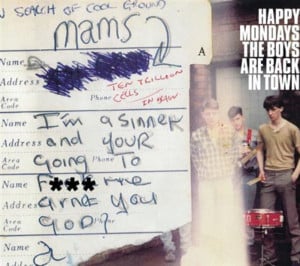 IN SEARCH OF COOL GROUND
mams
A
Name
Address
TEN TRILLION
Area
Code
Phone
CELLS
IN
Name
I'm a sinner
Address
and your
Area
Code
Going
Phone
to
Name
F*** me
Address
arnt you
Area
Code
GOD?
Name
HAPPY
MONDAYS
THE BOYS
ARE BACK
IN TOWN